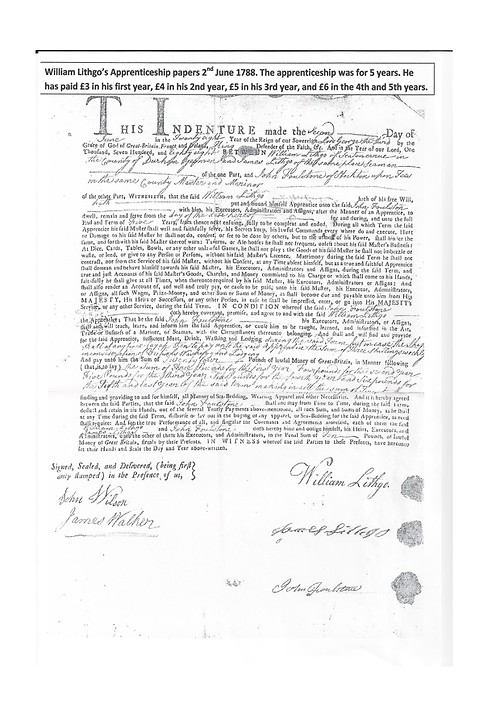 William Lithgo's Apprenticeship papers 2nd June 1788. The apprenticeship was for 5 years. He
has paid £3 in his first year, £4 in his 2nd year, £5 in his 3rd year, and £6 in the 4th and 5th years.
THIS INDENTURE made the Second Day of
June in the Twenty eight Year of the Reign of our Sovereign Lord George the third by the
Grace of God of Great-Britain, France and Ireland, King Defender of the Faith, &c. And in the Year of our Lord, One
Thousand, Seven Hundred, and Eighty eight BETWEEN William Lithgo of Seaton in
the County of Durham and James Lithgo of the same place
of the one Part, and John Foulstone of Stockton upon Tees
in the same County Master and Mariner
of the other Part, WITNESSETH, that the said William Lithgo of his free Will,
hath put and bound himself Apprentice unto the said John Foulstone
with him, his Executors, Administrators and Assigns, after the Manner of an Apprentice, to
dwell, remain and serve from the Day of the Date hereof
End and Term of Five Years, from thence next ensuing, fully to be compleat and ended. During all which Term the said
Apprentice his said Master shall well and faithfully serve, his Secrets keep, his lawful Commands every where do and execute, Hurt
or Damage to his said Master he shall not do, consent, or see to be done by others, but to the utmost of his Power, shall hinder the
same, and forthwith his said Master thereof warn: Taverns, or Ale-houses he shall not frequent, unless about his said Master's Business;
At Dice, Cards, Tables, Bowls, or any other unlawful Games, he shall not play; the Goods of his said Master he shall not imbezzle or
waste, or lend, or give to any Person or Persons, without his said Master's Licence. Matrimony during the said Term he shall not
contract, nor from the Service of his said Master, without his Consent, at any Time absent himself, but as a true and faithful Apprentice
shall demean and behave himself towards his said Master, his Executors, Administrators and Assigns, during the said Term, and
true and just Accounts of his said Master's Goods, Chattels, and Money committed to his Charge or which shall come to his Hands,
faithfully he shall give at all Times, when thereunto required by his said Master, his Executors, Administrators, or Assigns: And
shall also render an Account of, and well and truly pay, or cause to be paid, unto his said Master, his Executors, Administrators,
or Assigns, all such Wages, Prize-Money, and other Sum or Sums of Money, as shall become due and payable unto him from His
MAJESTY, His Heirs or Successors, or any other Person, in case he shall be impressed, enter, or go into His MAJESTY's
Service, or any other Service, during the said Term. IN CONDITION whereof the said John Foulstone
doth hereby covenant, promise, and agree to and with the said William Lithgo
the Apprentice: That he the said John Foulstone his Executors, Administrators, or Assigns,
shall and will teach, learn, and inform him the said Apprentice, or cause him to be taught, learned, and informed, in the Art,
Trade, or Business of a Mariner, or Seaman, with the Circumstances thereunto belonging. And shall and will find and provide
for the said Apprentice, sufficient Meat, Drink, Washing and Lodging during the said Term
And pay unto him the Sum of Twenty four Pounds of lawful Money of Great-Britain, in Manner following
(that is to say) The sum of Three Pounds for the first Year Four pounds for the second Year
Five Pounds for the third Year Six Pounds for the fourth Year and Six pounds for
the Fifth and last Year of the said term making in all the sum of
finding and providing to and for himself, all Manner of Sea-Bedding, Wearing Apparel and other Necessaries. And it is hereby agreed
between the said Parties, that the said John Foulstone shall and may from Time to Time, during the said Term,
deduct and retain in his Hands, out of the several Yearly Payments above-mentioned, all such Sum, and Sums of Money, as he shall
at any Time during the said Term, disburse or lay out in the buying of any Apparel, or Sea-Bedding, for the said Apprentice, as need
shall require: And for the true Performance of all, and singular the Covenants and Agreements aforesaid, each of them the said
William Lithgo James Lithgo and John Foulstone doth hereby bind and oblige himself, his Heirs, Executors, and
Administrators, unto the other of them his Executors, and Administrators, in the Penal Sum of Ten Pounds, of lawful
Money of Great Britain, firmly by these Presents. IN WITNESS whereof the said Parties to these Presents, have hereunto
set their Hands and Seals the Day and Year above-written.
Signed, Sealed, and Delivered, (being first
duly stamped) in the Presence of us,
John Wilson
James Walker
William Lithgo
James Lithgo
John Foulstone